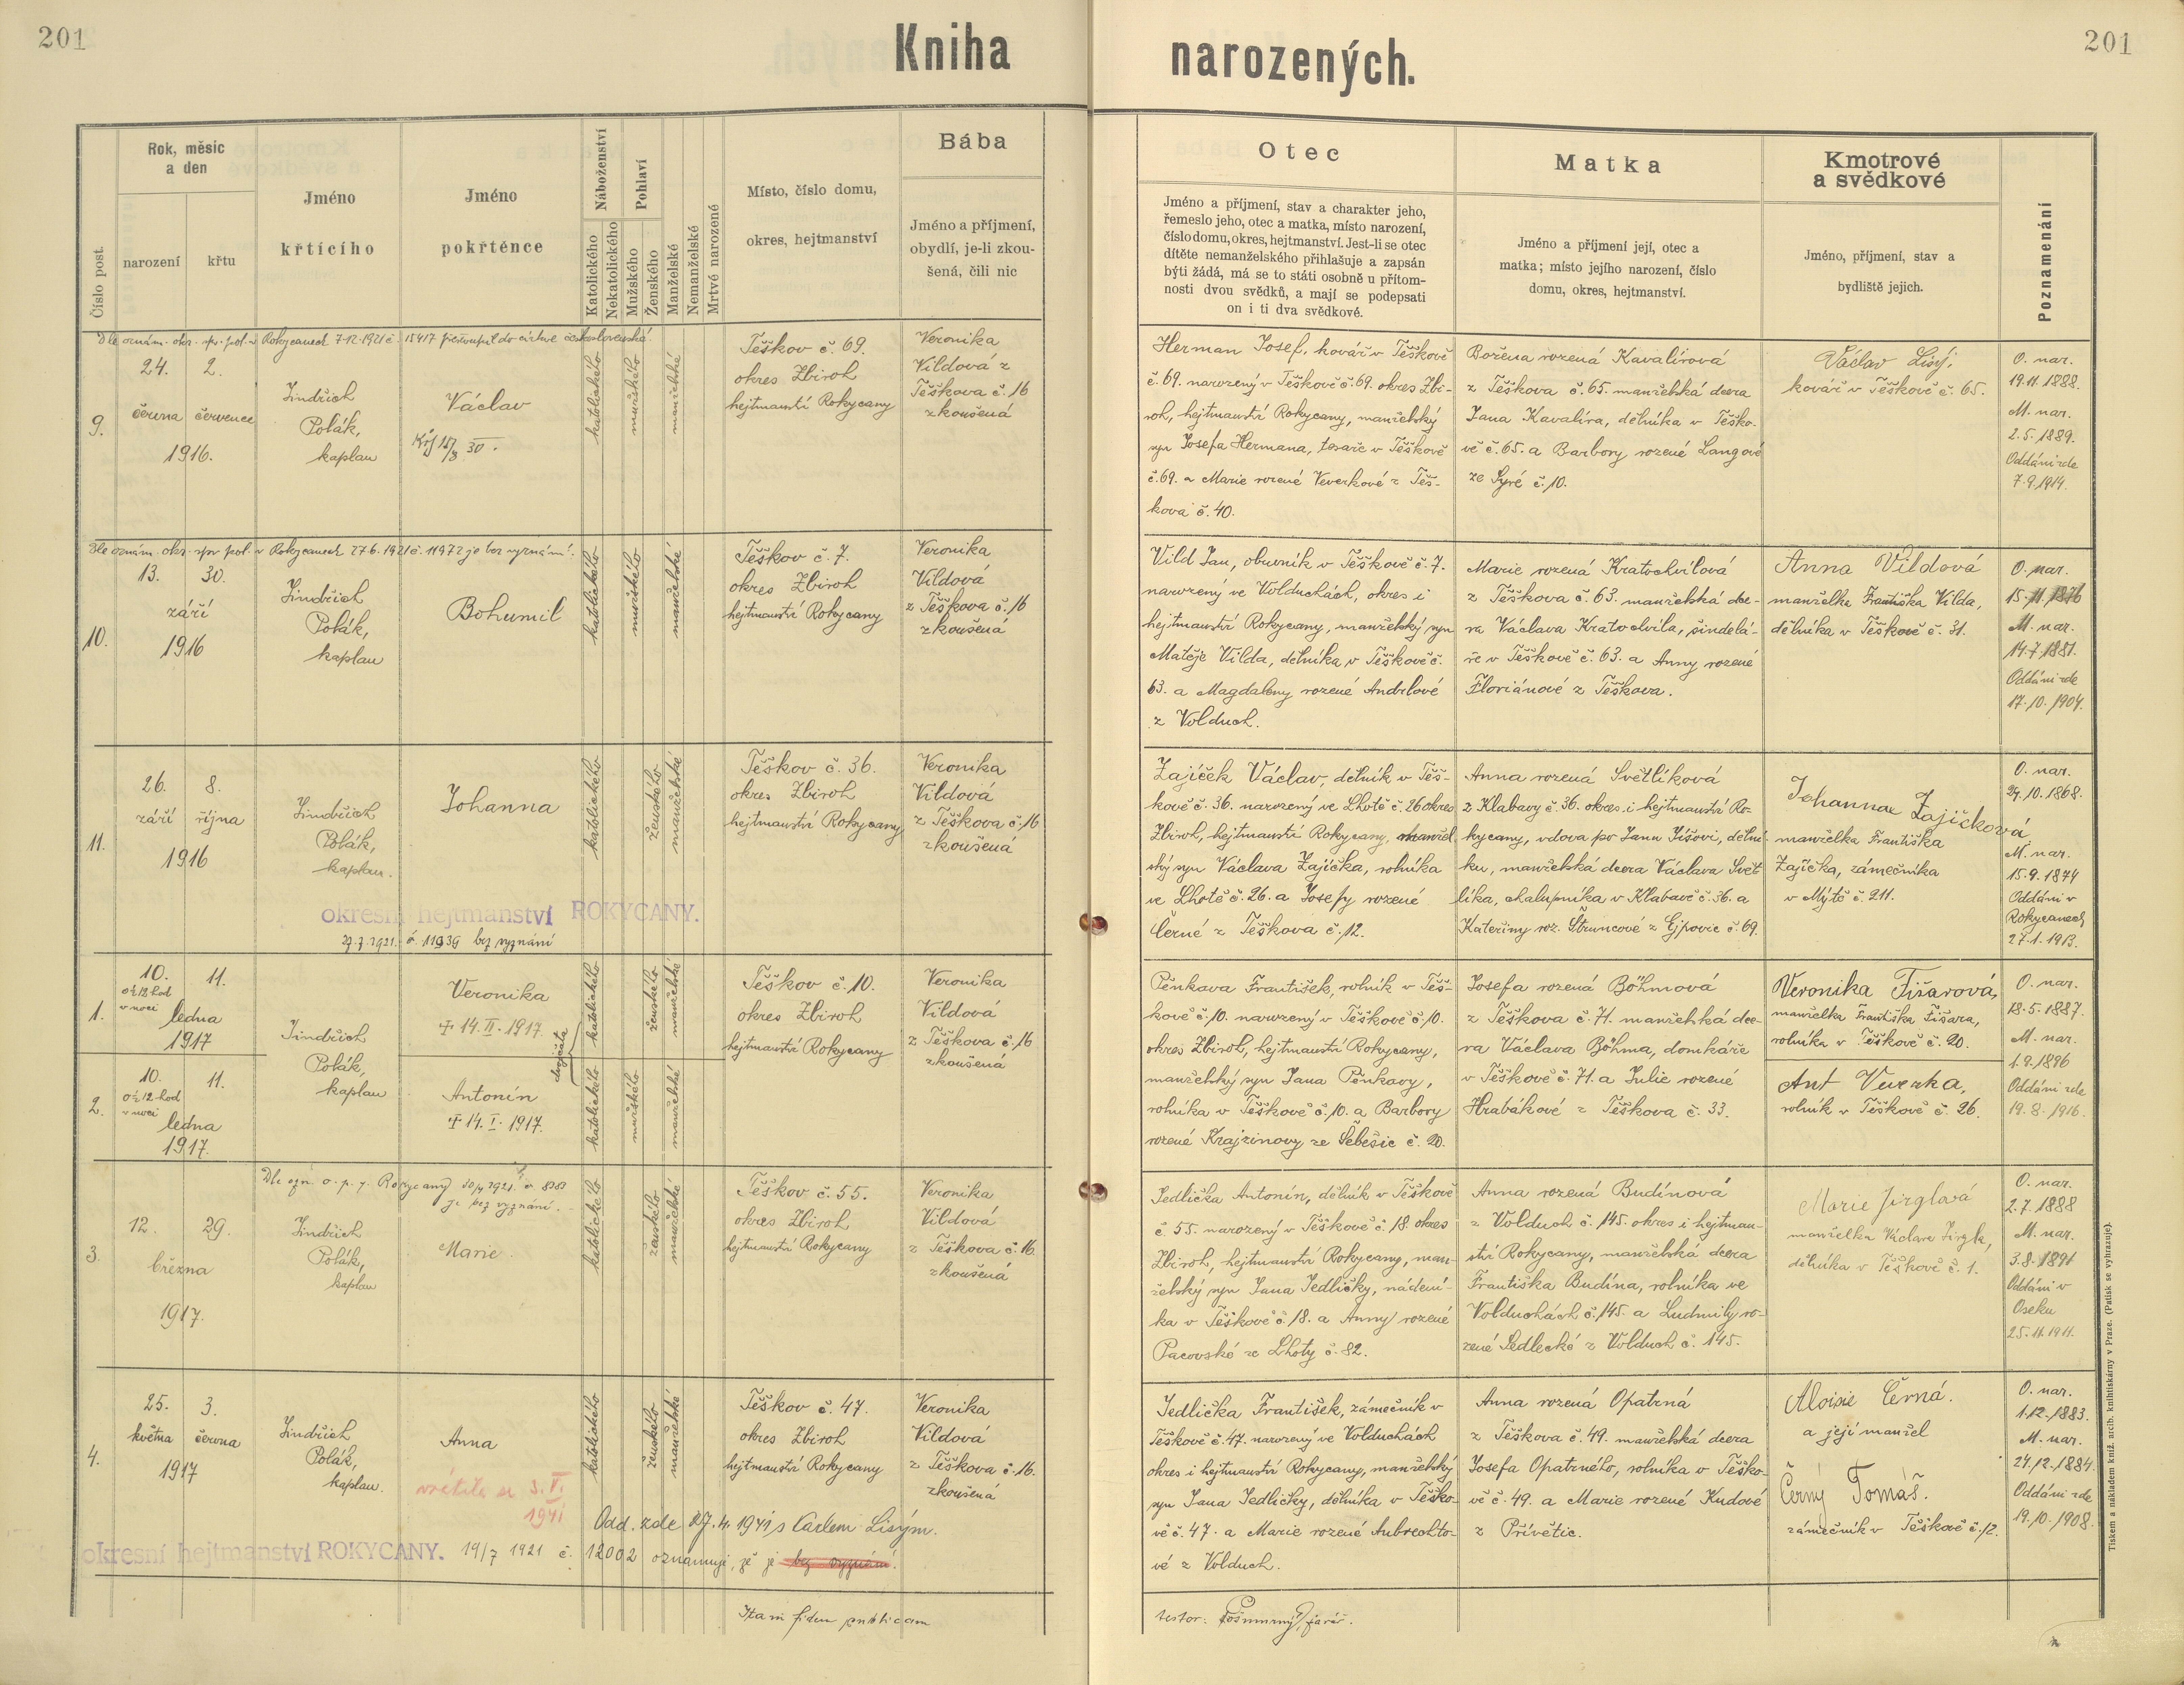 201
Kniha
narozených.
201
Číslo post.
Rok, měsíc
a den
narození
křtu
Jméno
křtícího
Jméno
pokřténce
Náboženství
Katolického
Nekatolického
Pohlaví
Mužského
Ženského
Manželské
Nemanželské
Mrtvé narozené
Místo, číslo domu,
okres, hejtmanství
Bába
Jméno a příjmení,
obydlí, je-li zkou-
šená, čili nic
Otec
Jméno a příjmení, stav a charakter jeho,
řemeslo jeho, otec a matka, místo narození,
číslo domu, okres, hejtmanství. Jest-li se otec
dítěte nemanželského přihlašuje a zapsán
býti žádá, má se to státi osobně u přítom-
nosti dvou svědků, a mají se podepsati
on i ti dva svědkové.
Matka
Jméno a příjmení její, otec a
matka; místo jejího narození, číslo
domu, okres, hejtmanství.
Kmotrové
a svědkové
Jméno, příjmení, stav a
bydliště jejich.
Poznamenání
Dle oznám. okr. spr. pol. v Rokycanech 7.12.1921 č. 15417 přestoupil do církve československé.
9.
24. 2.
června července
1916.
Jindřich
Polák,
kaplan
Václav
katolického
mužského
manželské
Těškov č. 69.
okres Zbiroh
hejtmanství Rokycany
Veronika
Vildová z
Těškova č. 16
zkoušená
Herman Josef, kovář v Těškově
č. 69. narozený v Těškově č. 69. okres Zbi-
roh, hejtmanství Rokycany, manželský
syn Josefa Hermana, tesaře v Těškově
č. 69. a Marie rozené Veverkové z Těš-
kova č. 40.
Božena rozená Kavalírová
z Těškova č. 65. manželská dcera
Jana Kavalíra, dělníka v Těško-
vě č. 65. a Barbory rozené Langové
ze Syré č. 10.
Václav Lisý,
kovář v Těškově č. 65.
O. nar.
19.11.1888.
M. nar.
2.5.1889.
Oddáni zde
7.9.1914.
Dle oznám. okr. spr. pol. v Rokycanech 27.6.1921 č. 11972 je bez vyznání.
10.
13. 30.
září
1916
Jindřich
Polák,
kaplan
Bohumil
katolického
mužského
manželské
Těškov č. 7.
okres Zbiroh
hejtmanství Rokycany
Veronika
Vildová
z Těškova č. 16
zkoušená
Vild Jan, obuvník v Těškově č. 7.
narozený ve Volduchách, okres i
hejtmanství Rokycany, manželský syn
Matěje Vilda, dělníka v Těškově č.
63. a Magdaleny rozené Andrlové
z Volduch.
Marie rozená Kratochvílová
z Těškova č. 63. manželská dce-
ra Václava Kratochvíla, šindelá-
ře v Těškově č. 63. a Anny rozené
Floriánové z Těškova.
Anna Vildová
manželka Františka Vilda,
dělníka v Těškově č. 31.
O. nar.
15.11.1876
M. nar.
14.7.1881.
Oddáni zde
17.10.1904.
11.
26. 8.
září října
1916
Jindřich
Polák,
kaplan.
Johanna
katolického
ženského
manželské
Těškov č. 36.
okres Zbiroh
hejtmanství Rokycany
Veronika
Vildová
z Těškova č. 16
zkoušená
okresní hejtmanství ROKYCANY.
27.7.1921. č. 11939 bez vyznání
Zajíček Václav, dělník v Těš-
kově č. 36. narozený ve Lhotě č. 26 okres
Zbiroh, hejtmanství Rokycany, manžel
ský syn Václava Zajíčka, rolníka
ve Lhotě č. 26. a Josefy rozené
Černé z Těškova č. 12.
Anna rozená Světlíková
z Klabavy č. 36. okres i hejtmanství Ro-
kycany, vdova po Janu Jíšovi, dělní
ku, manželská dcera Václava Svět
líka, chalupníka v Klabavě č. 36. a
Kateřiny roz. Štruncové z Ejpovic č. 69.
Johanna Zajíčková
manželka Františka
Zajíčka, zámečníka
v Mýtě č. 211.
O. nar.
24.10.1868.
M. nar.
15.9.1874
Oddáni v
Rokycanech
27.1.1913.
1.
10. 11.
o ½ 12 hod
v noci
ledna
1917
Jindřich
Polák,
kaplan
Veronika
† 14. II. 1917.
dvojčata
katolického
ženského
manželské
Těškov č. 10.
okres Zbiroh
hejtmanství Rokycany
Veronika
Vildová
z Těškova č. 16
zkoušená
2.
10. 11.
o ½ 12 hod
v noci
ledna
1917.
Antonín
† 14. I. 1917.
katolického
mužského
manželské
Pěnkava František, rolník v Těš-
kově č. 10. narozený v Těškově č. 10.
okres Zbiroh, hejtmanství Rokycany,
manželský syn Jana Pěnkavy,
rolníka v Těškově č. 10. a Barbory
rozené Krajzinovy ze Sebešic č. 20.
Josefa rozená Böhmová
z Těškova č. 71. manželská dce-
ra Václava Böhma, domkáře
v Těškově č. 71. a Julie rozené
Hrabákové z Těškova č. 33.
Veronika Fišarová,
manželka Františka Fišara,
rolníka v Těškově č. 20.
Ant Veverka,
rolník v Těškově č. 26.
O. nar.
18.5.1887.
M. nar.
1.9.1896
Oddáni zde
19.8.1916.
3.
12. 29.
března
1917.
Jindřich
Polák,
kaplan
je bez vyznání.
Marie.
katolického
ženského
manželské
Těškov č. 55.
okres Zbiroh
hejtmanství Rokycany
Veronika
Vildová
z Těškova č. 16.
zkoušená
Jedlička Antonín, dělník v Těškově
č. 55. narozený v Těškově č. 18. okres
Zbiroh, hejtmanství Rokycany, man-
želský syn Jana Jedličky, nádení-
ka v Těškově č. 18. a Anny rozené
Pacovské ze Lhoty č. 82.
Anna rozená Budínová
z Volduch č. 145. okres i hejtman-
ství Rokycany, manželská dcera
Františka Budína, rolníka ve
Volduchách č. 145. a Ludmily ro-
zené Sedlecké z Volduch č. 145.
Marie Jirglová
manželka Václava Jirgla,
dělníka v Těškově č. 1.
O. nar.
2.7.1888
M. nar.
3.8.1891
Oddáni v
Oseku
25.11.1911.
4.
25. 3.
května června
1917
Jindřich
Polák,
kaplan.
Anna
vrátila se 3. VI.
1941
katolického
ženského
manželské
Těškov č. 47.
okres Zbiroh
hejtmanství Rokycany
Veronika
Vildová
z Těškova č. 16.
zkoušená
Odd. zde 27.4. 1941 s Karlem Lisým.
okresní hejtmanství ROKYCANY. 19/7 1921 č. 12002 oznamuje, že je bez vyznání.
Jedlička František, zámečník v
Těškově č. 47. narozený ve Volduchách
okres i hejtmanství Rokycany, manželský
syn Jana Jedličky, dělníka v Těško-
vě č. 47. a Marie rozené Aubrechto-
vé z Volduch.
Anna rozená Opatrná
z Těškova č. 49. manželská dcera
Josefa Opatrného, rolníka v Těško-
vě č. 49. a Marie rozené Kudové
z Přívětic.
Aloisie Černá.
a její manžel
Černý Tomáš.
zámečník v Těškově č. 12.
O. nar.
1.12.1883.
M. nar.
24.12.1884.
Oddáni zde
19.10.1908.
Ita in fidem publicam
testor: farář.
Tiskem a nákladem kníž. arcib. knihtiskárny v Praze. (Patisk se vyhrazuje).